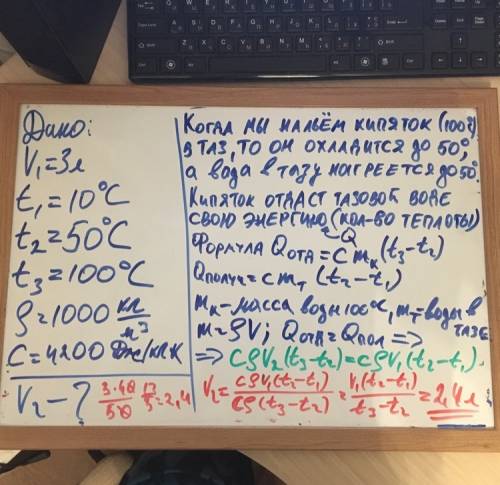 Дано:
V₁=3л
t₁=10°C
t₂=50°C
t₃=100°C
ρ=1000 кг/м³
C=4200 Дж/кг·К
V₂-? 3·40/50 12/5=2,4
Когда мы нальём кипяток (100°)
в таз, то он охладится до 50°,
а вода в тазу нагреется до 50°.
Кипяток отдаст тазовой воде
свою энергию (кол-во теплоты)
Q
Формула Qотд=cmк(t₃-t₂)
Qполуч=cmт(t₂-t₁)
mк-масса воды 100°C, mт-воды в
тазе
m=ρV; Qотд=Qпол =>
=> CρV₂(t₃-t₂)=CρV₁(t₂-t₁).
V₂=CρV₁(t₂-t₁)/Cρ(t₃-t₂)=V₁(t₂-t₁)/t₃-t₂=2,4л